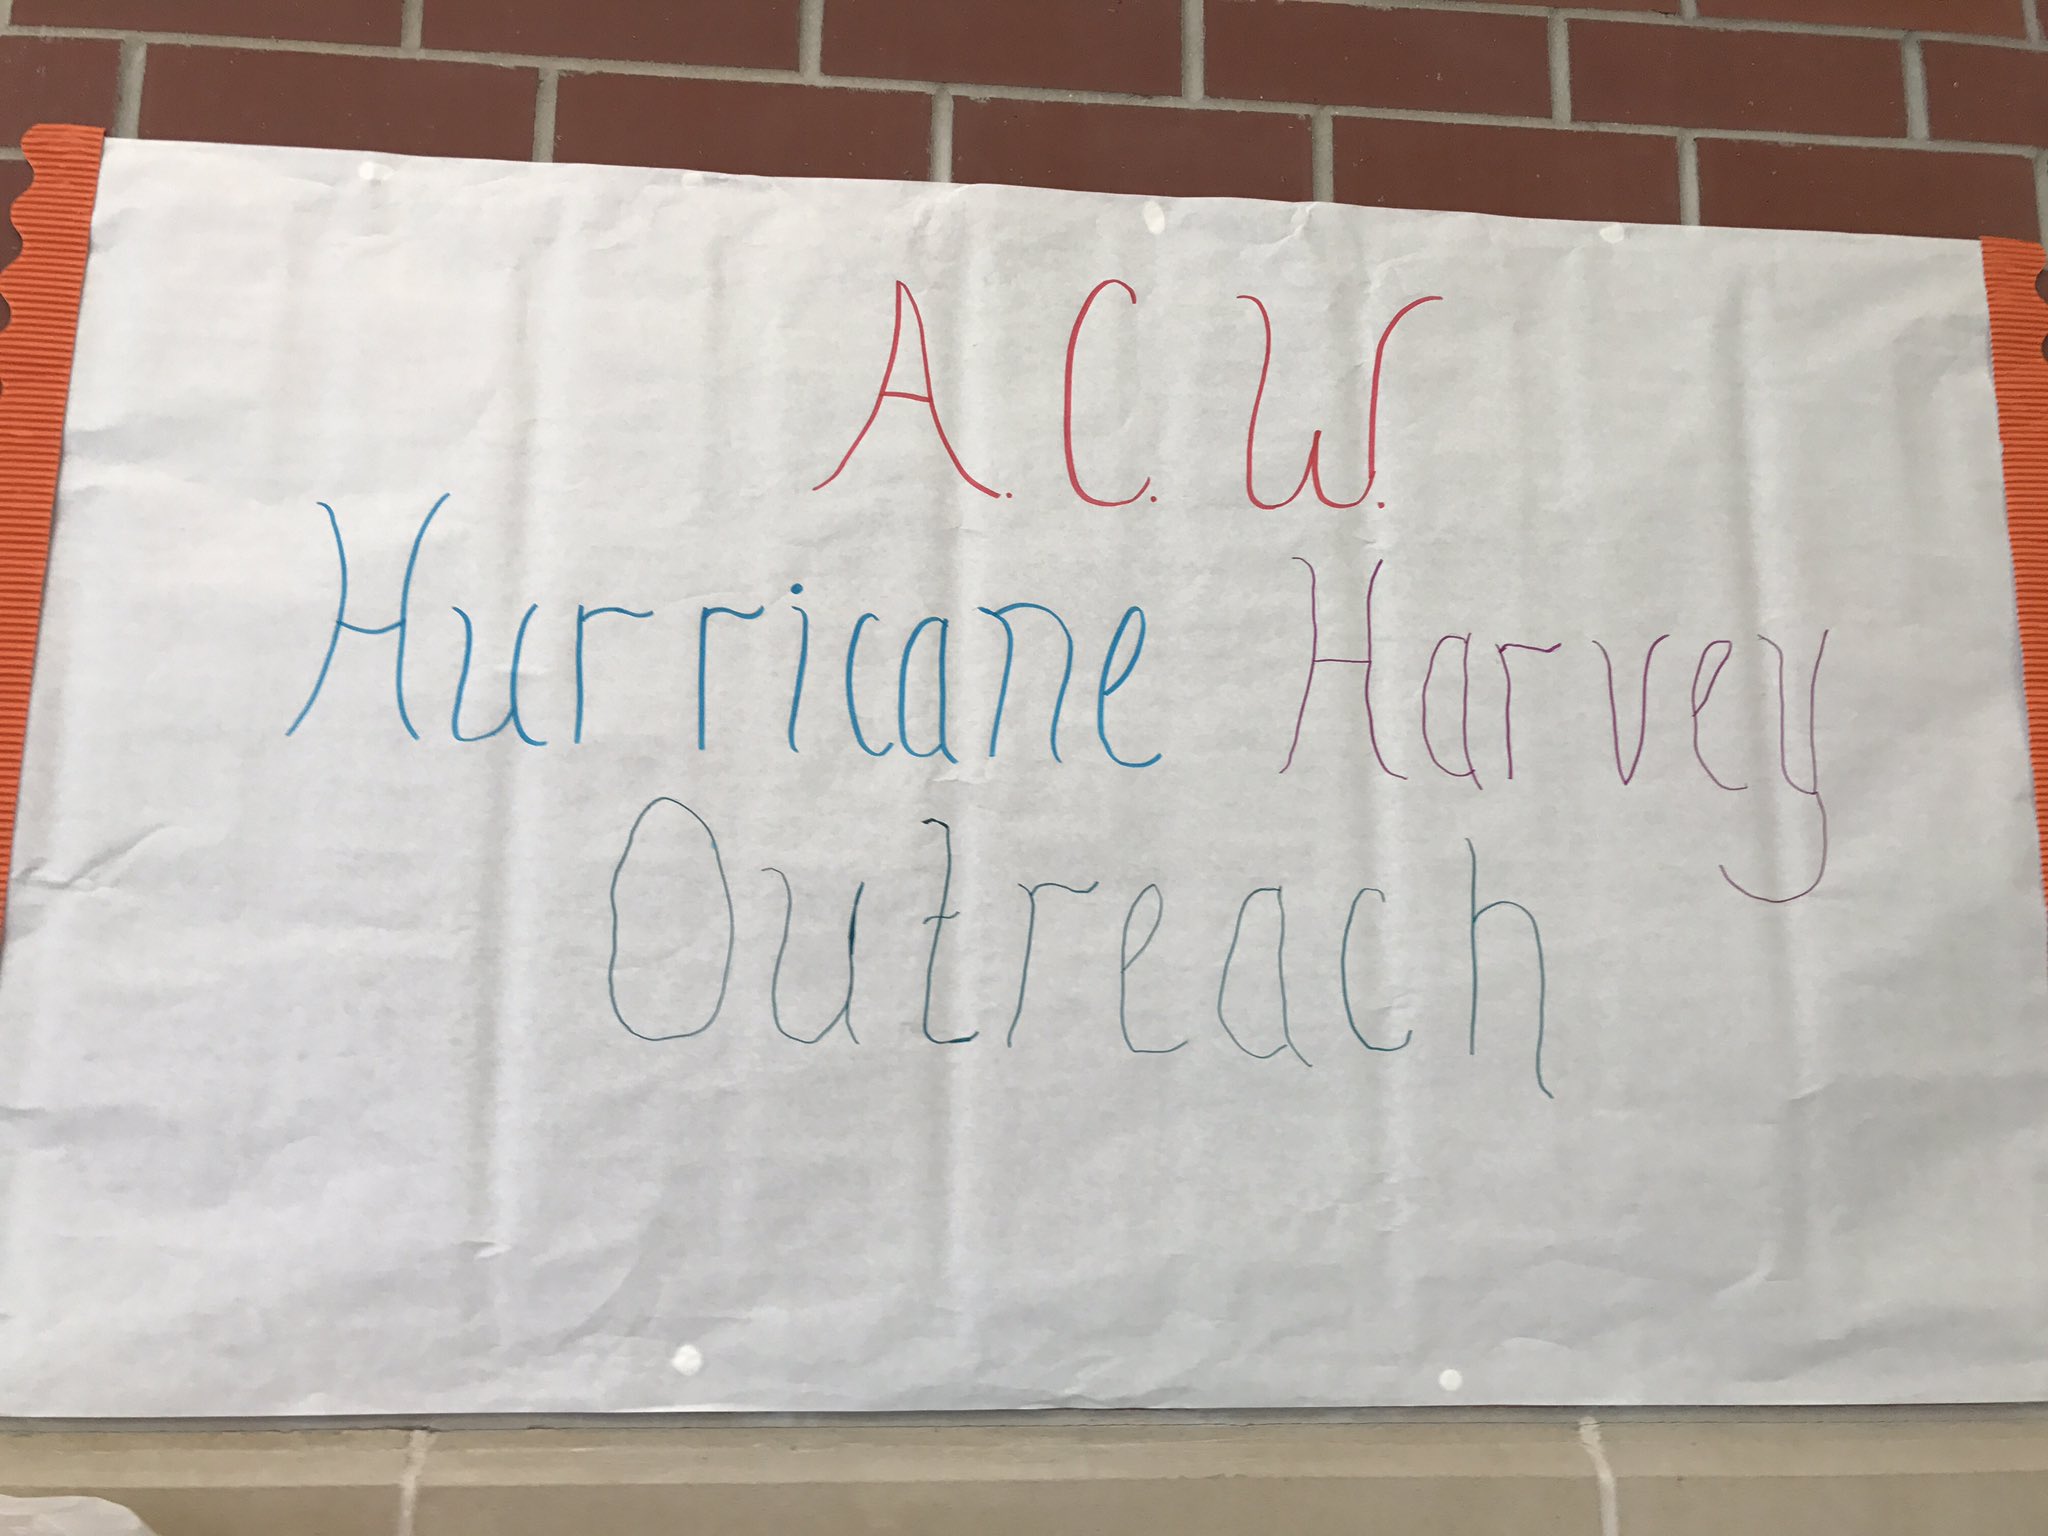 A.C.W.
Hurricane Harvey
Outreach